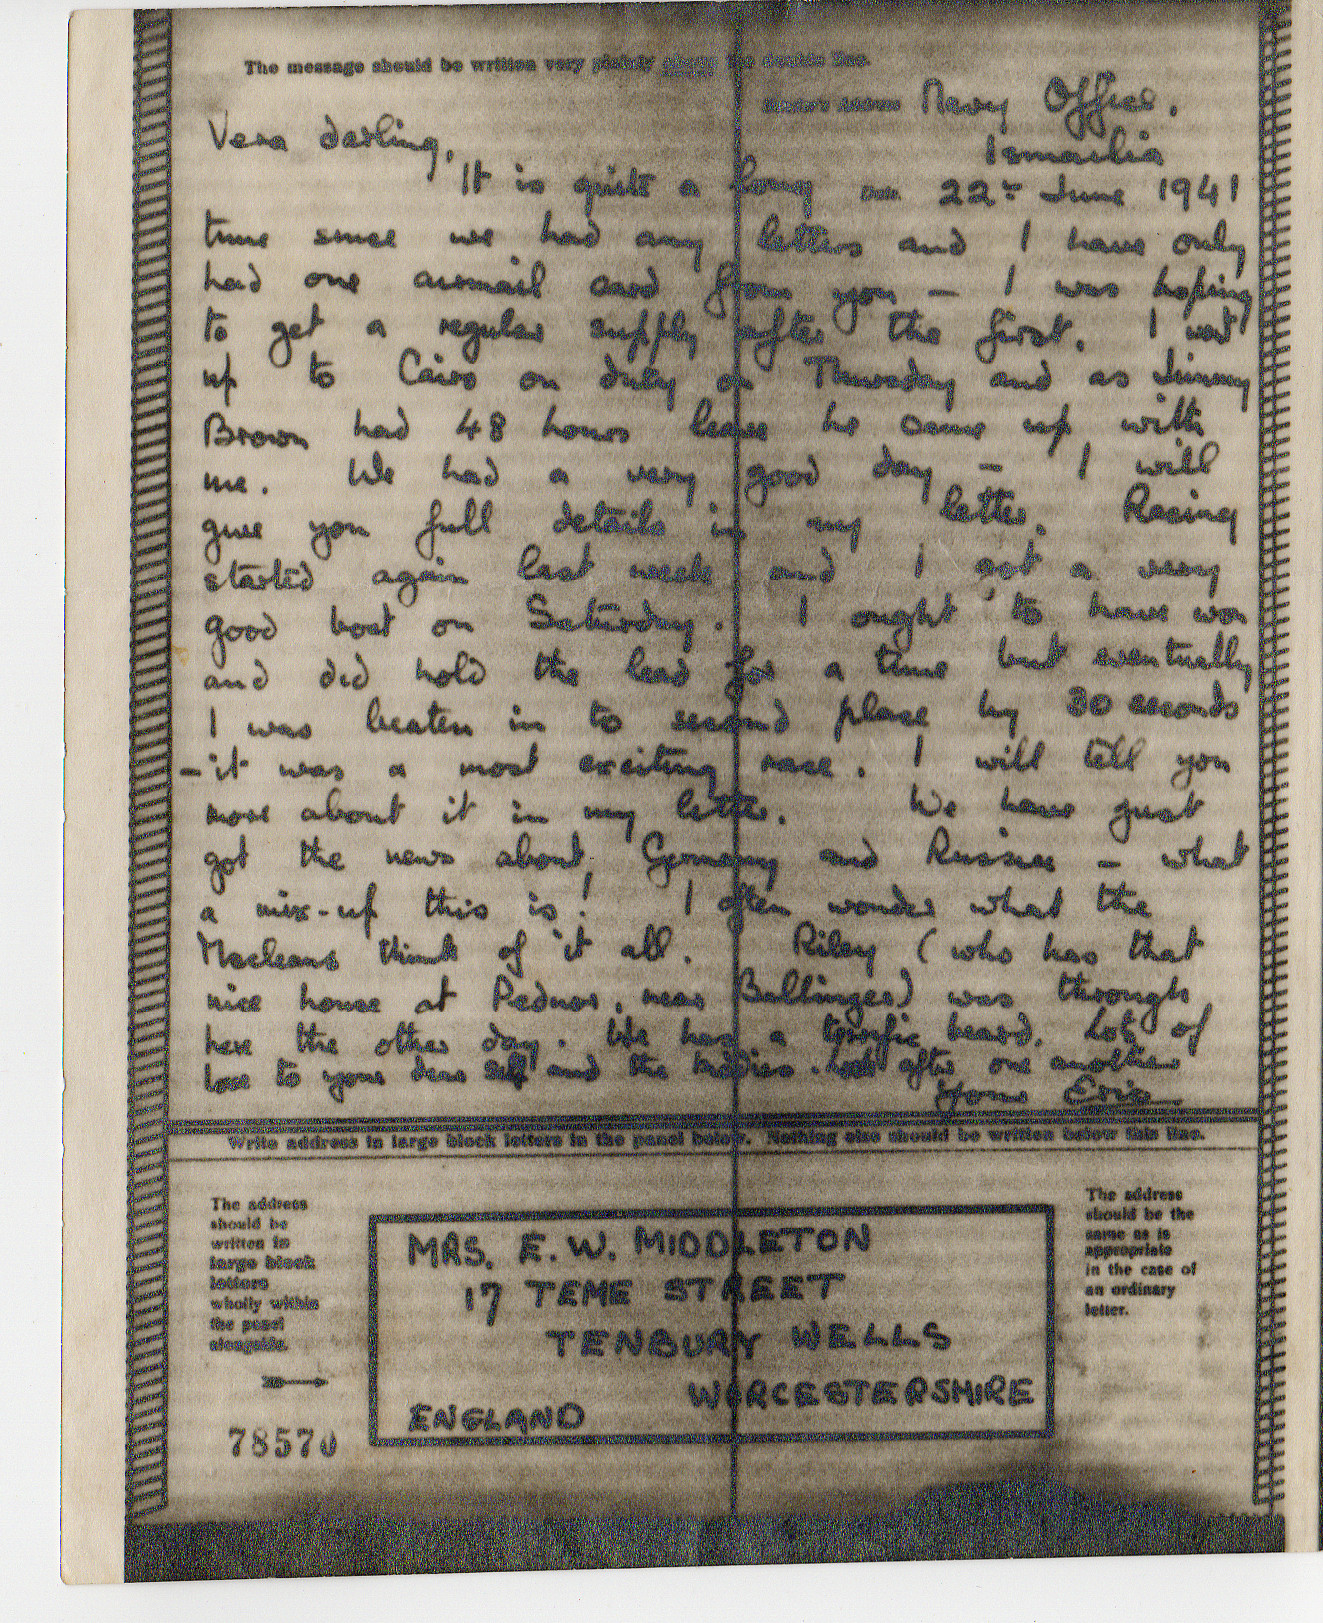 The message should be written very plainly above the double line.
Sender's Address Navy Office.
Vera darling, Ismailia
It is quite a long Date 22nd June 1941
time since we had any letters and I have only
had one airmail card from you – I was hoping
to get a regular supply after the first. I went
up to Cairo on duty on Thursday and as Jimmy
Brown had 48 hours leave he came up with
me. We had a very good day – I will
give you full details in my letter. Racing
started again last week and I got a very
good boat on Saturday. I ought to have won
and did hold the lead for a time but eventually
I was beaten in to second place by 30 seconds
– it was a most exciting race. I will tell you
more about it in my letter. We have just
got the news about Germany and Russia – what
a mix-up this is! I often wonder what the
Macleans think of it all. Riley (who has that
nice house at Pednor, near Ballinger) was through
here the other day. He has a terrific beard. Lots of
love to your dear self and the babies. Look after one another
Yours Eric
Write address in large block letters in the panel below. Nothing else should be written below this line.
The address
should be
written in
large block
letters
wholly within
the panel
alongside.
MRS. E. W. MIDDLETON
17 TEME STREET
TENBURY WELLS
WORCESTERSHIRE
ENGLAND
The address
should be the
same as is
appropriate
in the case of
an ordinary
letter.
78570